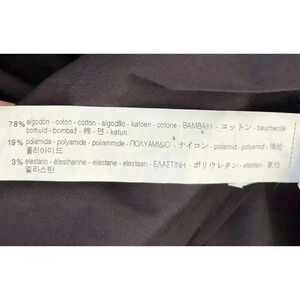 78% algodón - coton - cotton - algodão - katoen - cotone - ΒΑΜΒΑΚΙ - コットン - baumwolle
bomuld - bombaž - 棉 - 면 - katun
19% poliamida - polyamide - poliammide - ΠΟΛΥΑΜΙΔΙΟ - ナイロン - poliamid - polyamid - 锦纶
폴리아미드
3% elastano - élasthanne - elastane - elastaan - ΕΛΑΣΤΙΝΗ - ポリウレタン - elastan - 氨纶
엘라스틴